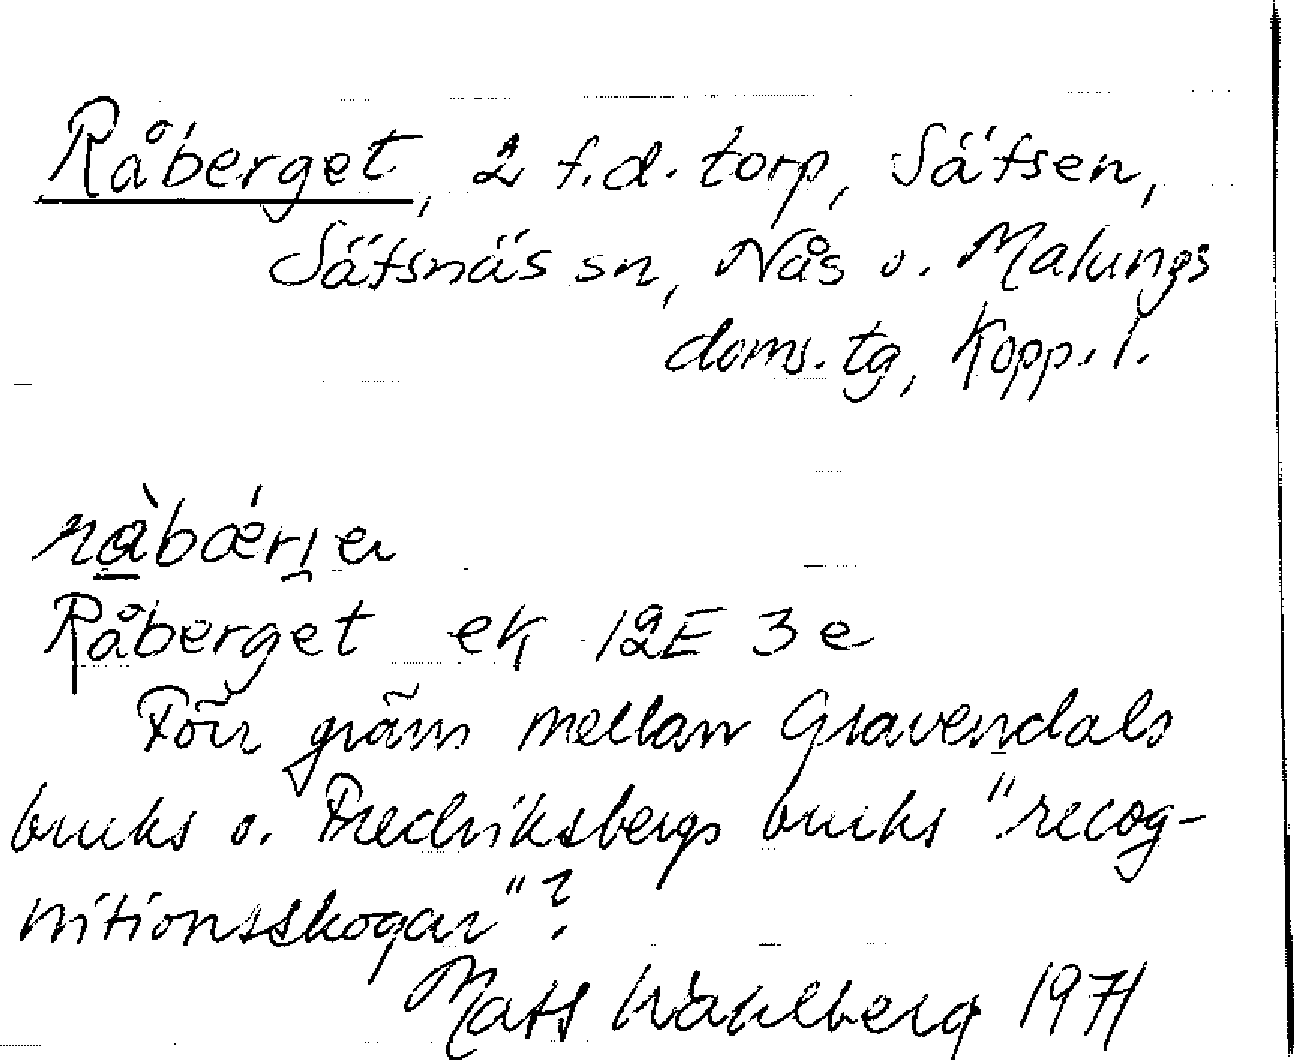 Råberget, 2 f.d. torp, Säfsen,
Säfsnäs sn, Nås o. Malungs
doms.tg, Kopp. l.
rå̀bǽri̯e
Råberget ek 12E 3e
Förr gräns mellan Gravendals
bruks o. Fredriksbergs bruks "recog-
nitionsskogar"?
Mats Wahlberg 1971